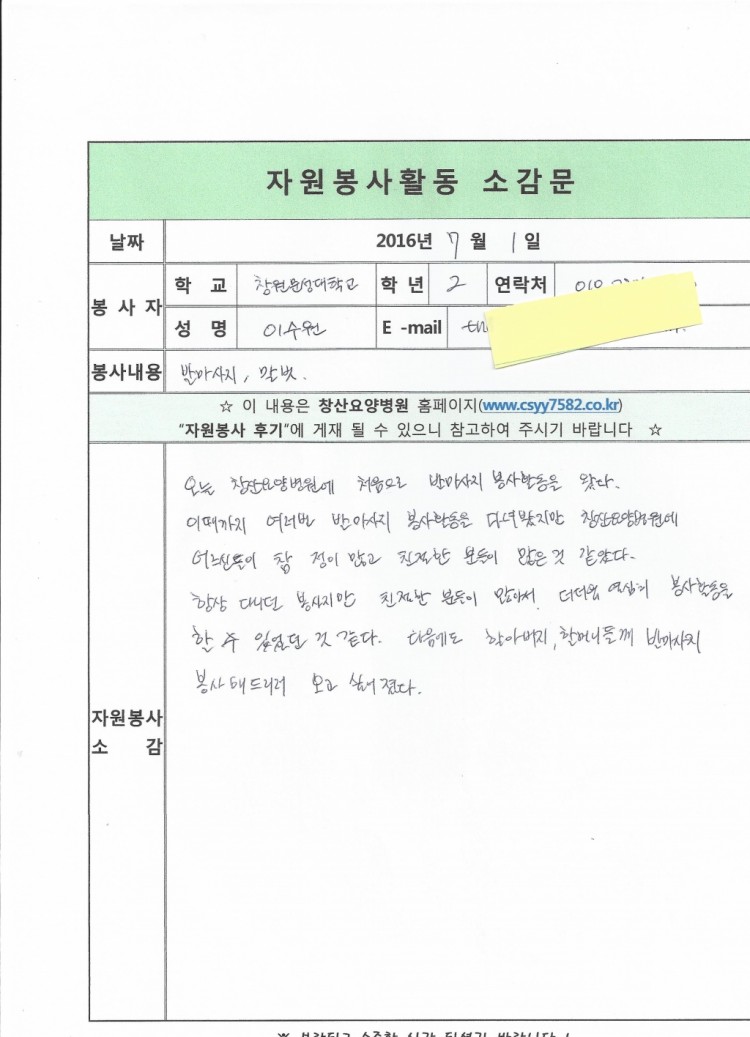 자원봉사활동 소감문
날짜 2016년 7 월 1 일
봉 사 자
학 교 창원문성대학교 학 년 2 연락처 010
성 명 이수원 E -mail
봉사내용 발마사지, 말벗.
☆ 이 내용은 창산요양병원 홈페이지(www.csyy7582.co.kr)
"자원봉사 후기"에 게재 될 수 있으니 참고하여 주시기 바랍니다 ☆
오늘 창산요양병원에 처음으로 발마사지 봉사활동을 왔다.
이때까지 여러번 발마사지 봉사활동을 다녀봤지만 창산요양병원에
어르신들이 참 정이 많고 친절한 분들이 많은 것 같았다.
항상 다니던 봉사지만 친절한 분들이 많아서 더더욱 열심히 봉사활동을
할 수 있었던 것 같다. 다음에도 할아버지, 할머니들께 발마사지
봉사 해드리러 오고 싶어 졌다.
자원봉사
소 감